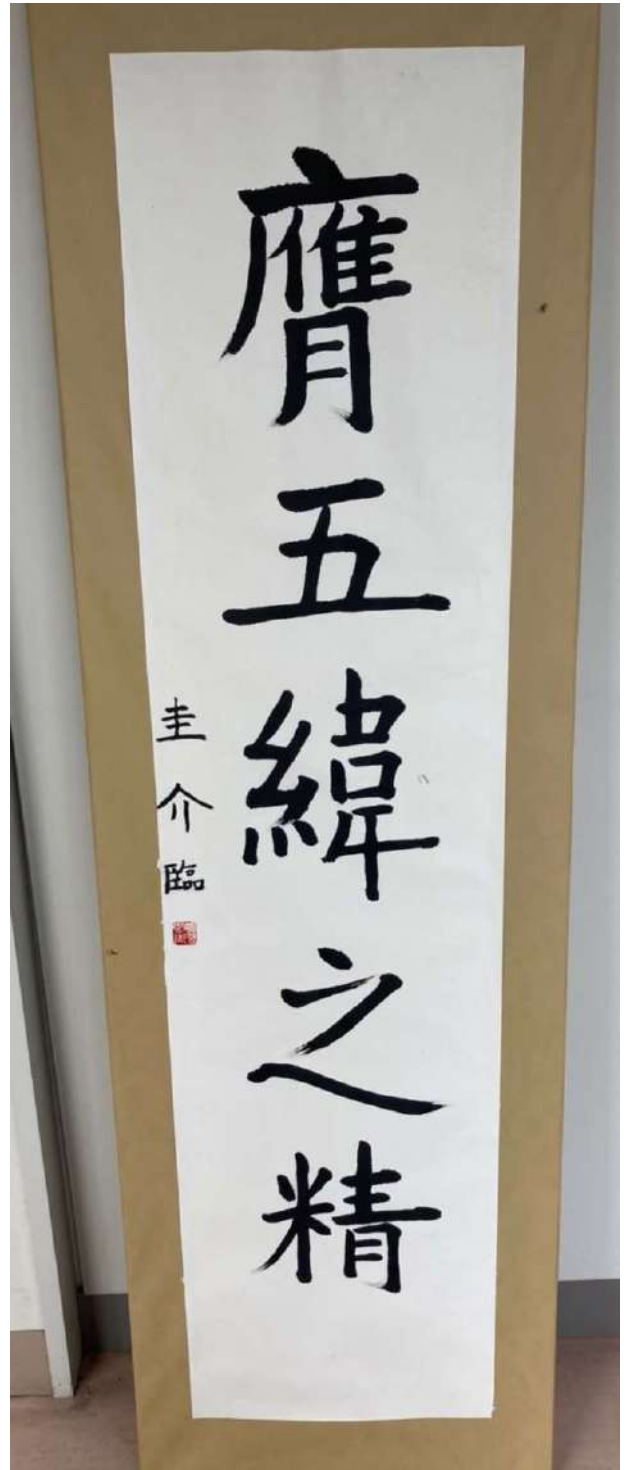 膺五緯之精
圭介臨